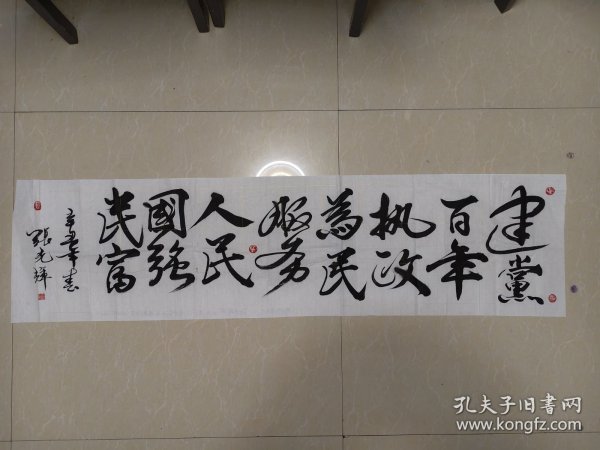 建黨
百年
执政
為民
服务
人民
國強
民富
辛丑年書
張光輝
孔夫子旧书网
www.kongfz.com